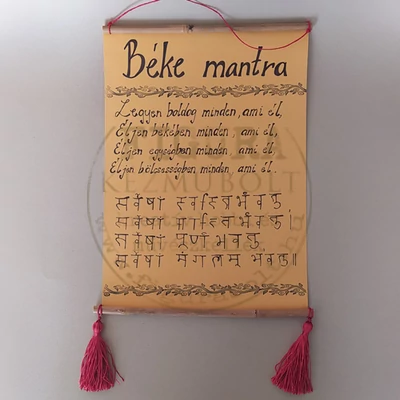 Béke mantra
Legyen boldog minden, ami él,
Éljen békében minden, ami él,
Éljen egységben minden, ami él,
Éljen bölcsességben minden, ami él.
सर्वेषा स्वस्तिर्भवतु,
सर्वेषा शान्तिर्भवतु।
सर्वेषा पूर्णं भवतु,
सर्वेषा मंगलम् भवतु॥
KÉZMŰBOLT